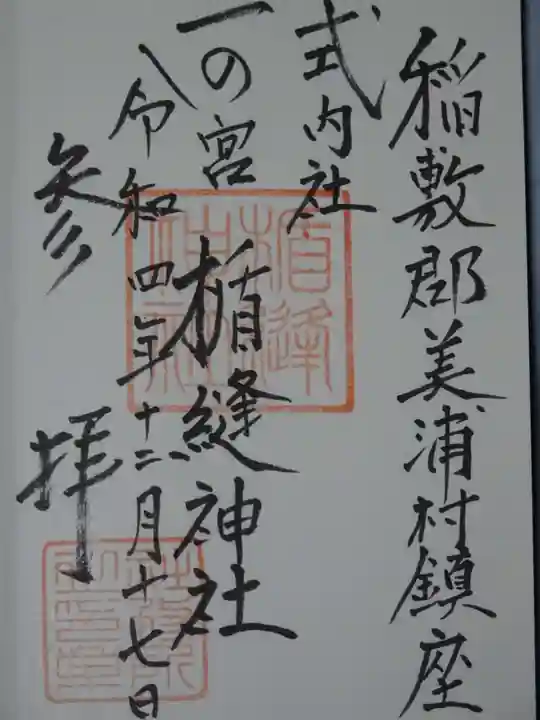 稲敷郡美浦村鎮座
式内社
一の宮 楯縫神社
令和四年十二月十七日
参拝
楯縫神社